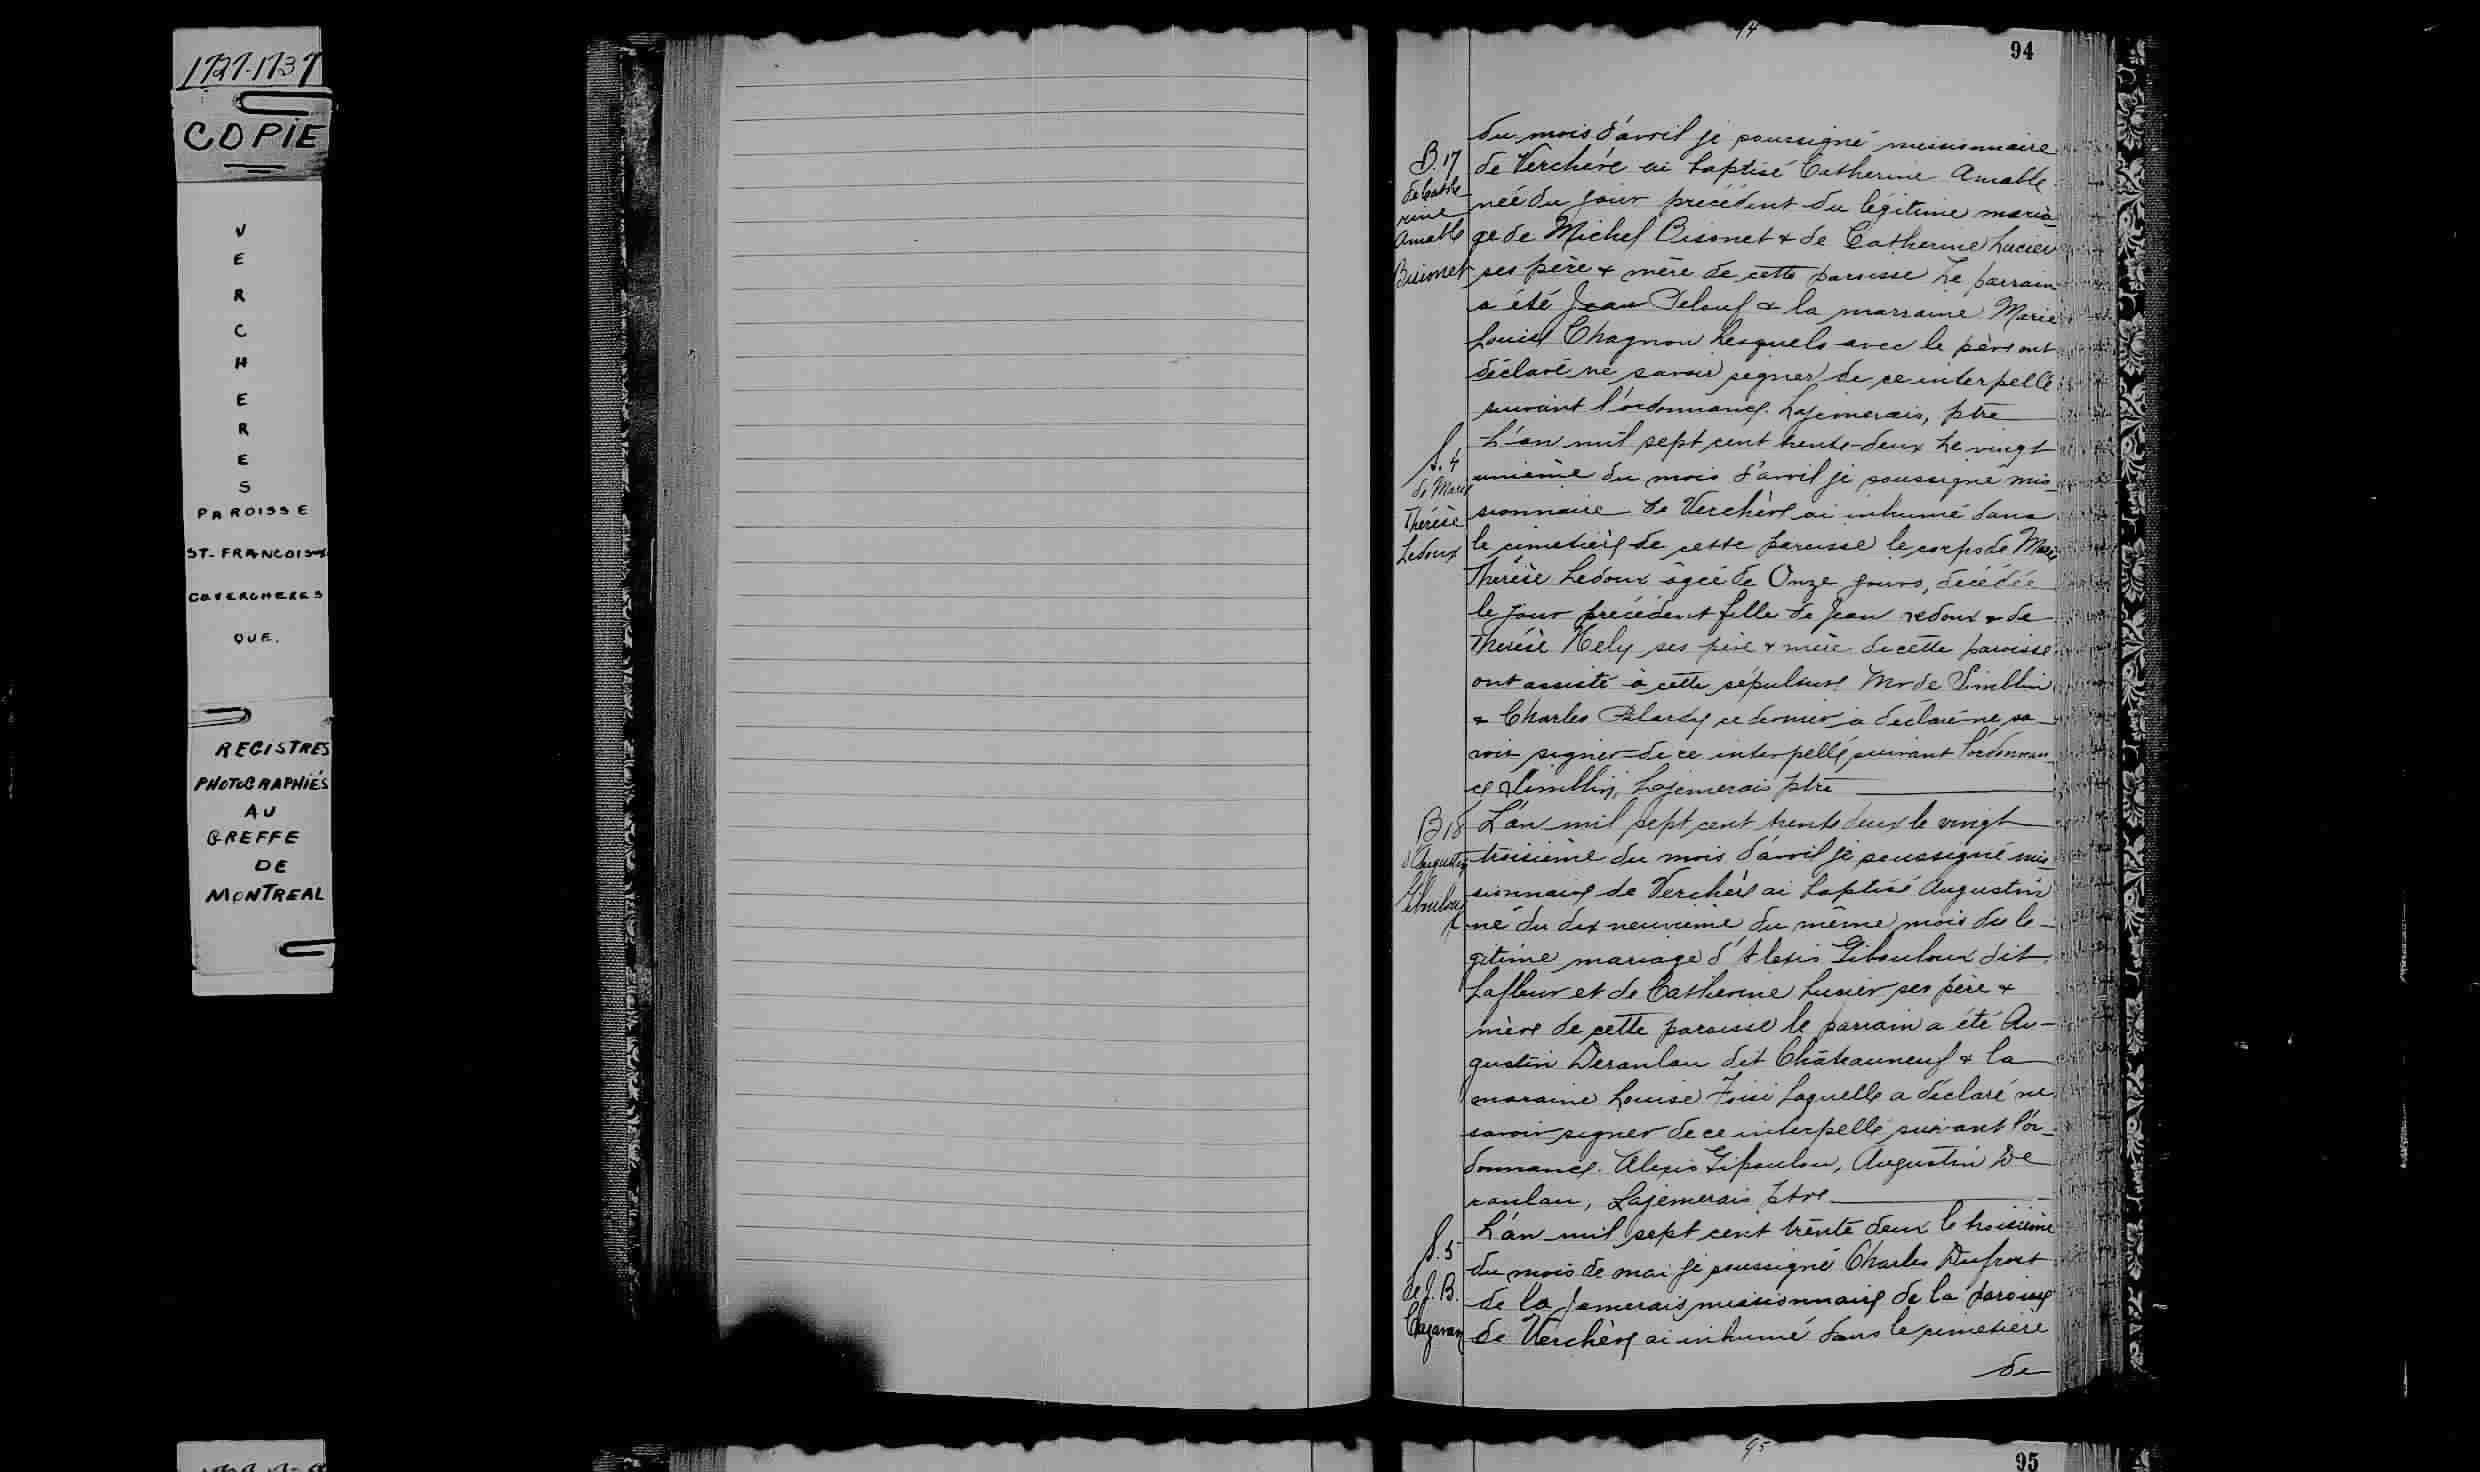 1727-1737
COPIE
VERCHERES
PAROISSE
ST-FRANCOIS-X
COVERCHERES
QUE.
REGISTRES
PHOTOGRAPHIÉS
AU
GREFFE
DE
MONTREAL
94
94
B. 17
de Cathe-
rine
Amable
Bissonet
du mois d'avril je soussigné missionnaire
de Verchère ai baptisé Catherine Amable
née du jour précédent du légitime maria-
ge de Michel Bisonet & de Catherine Lucier
ses père & mère de cette paroisse Le parrain
a été Jean & la marraine Marie
Louise Chagnon Lesquels avec le père ont
déclaré ne savoir signer de ce interpellé
suivant l'ordonnance. Lajemerais, ptre
S. 4
de Marie
Thérèse
Ledoux
L'an mil sept cent trente-deux Le vingt
unième du mois d'avril je soussigné mis-
sionnaire de Verchère ai inhumé dans
le cimetière de cette paroisse le corps de Marie
Thérèse Ledoux âgée de Onze jours, décédée
le jour précédent fille de Jean redoux & de
Thérèse Mely ses père & mère de cette paroisse
ont assisté à cette sépulture Mr de Simblin
& Charles ce dernier a déclaré ne sa-
voir signer de ce interpellé suivant l'ordonnan-
ce Simblin, Lajemerais ptre
B 18
d'Augustin
L'an mil sept cent trente deux le vingt
troisième du mois d'avril je soussigné mis-
sionnaire de Verchère ai baptisé Augustin
né du dix neuvième du même mois du lé-
gitime mariage d'Alexis Gibouloux dit
Lafleur et de Catherine Lusier ses père &
mère de cette paroisse le parrain a été Au-
gustin Deranlau dit Châteauneuf & la
maraine Louise Foisi Laquelle a déclaré ne
savoir signer de ce interpellé suivant l'or-
donnance. Alexis Giboulou, Augustin De
ranlau, Lajemerais ptre
S. 5
de J. B.
L'an mil sept cent trente deux le troisième
du mois de mai je soussigné Charles Dufrost
de la Jemerais missionnaire de la paroisse
de Verchère ai inhumé dans le cimetière
de
95
95